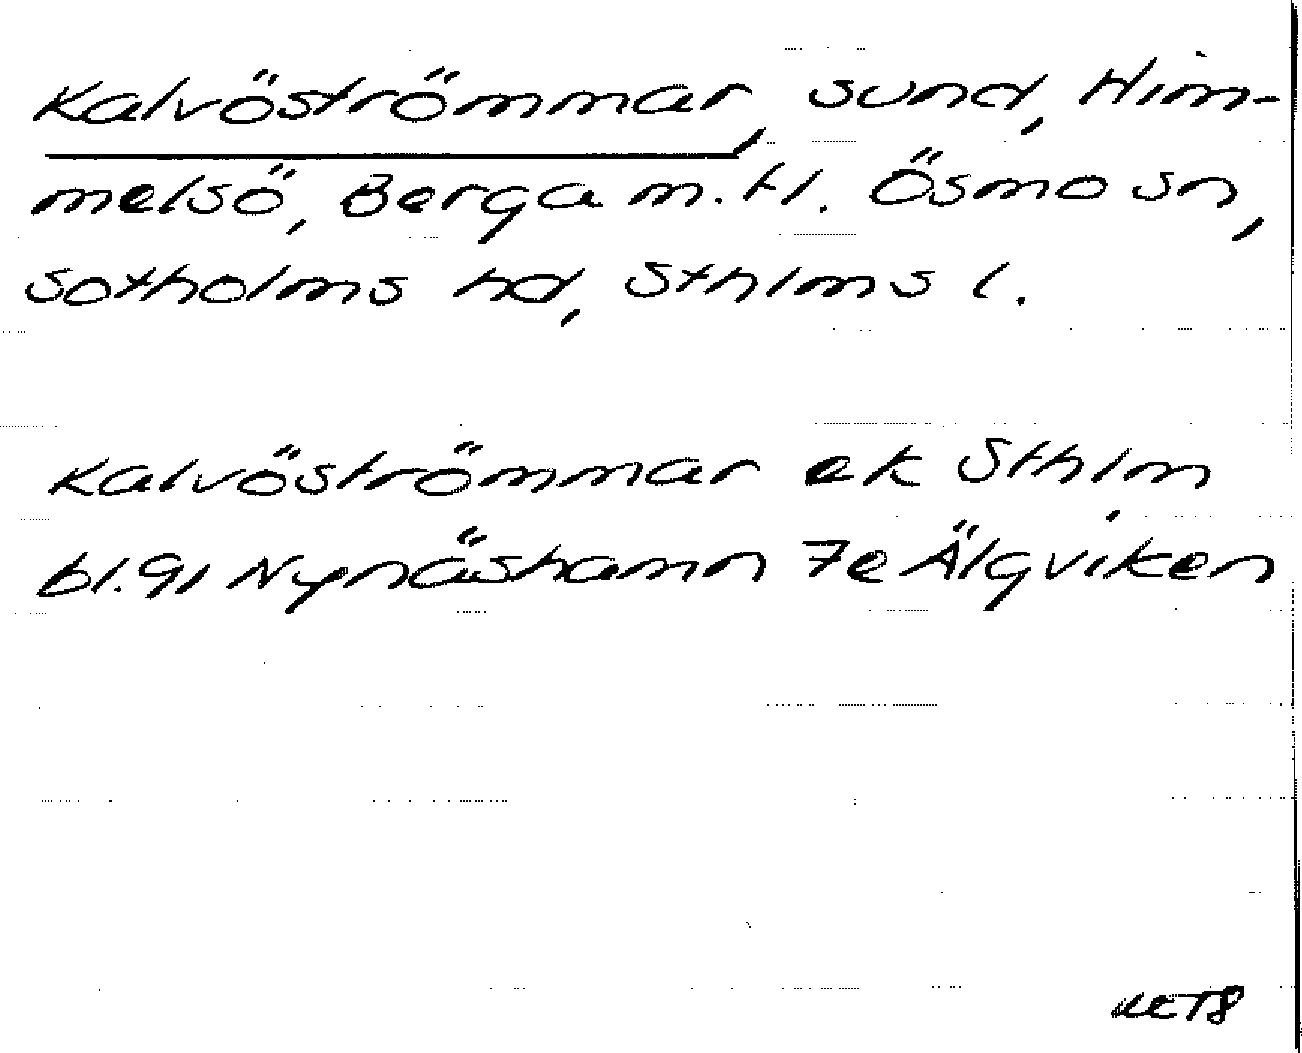 Kalvöströmmar, sund, Him-
melsö, Berga m.fl. Ösmo sn,
Sotholms hd, Sthlms l.
Kalvöströmmar ek Sthlm
bl.91 Nynäshamn 7e Älgviken